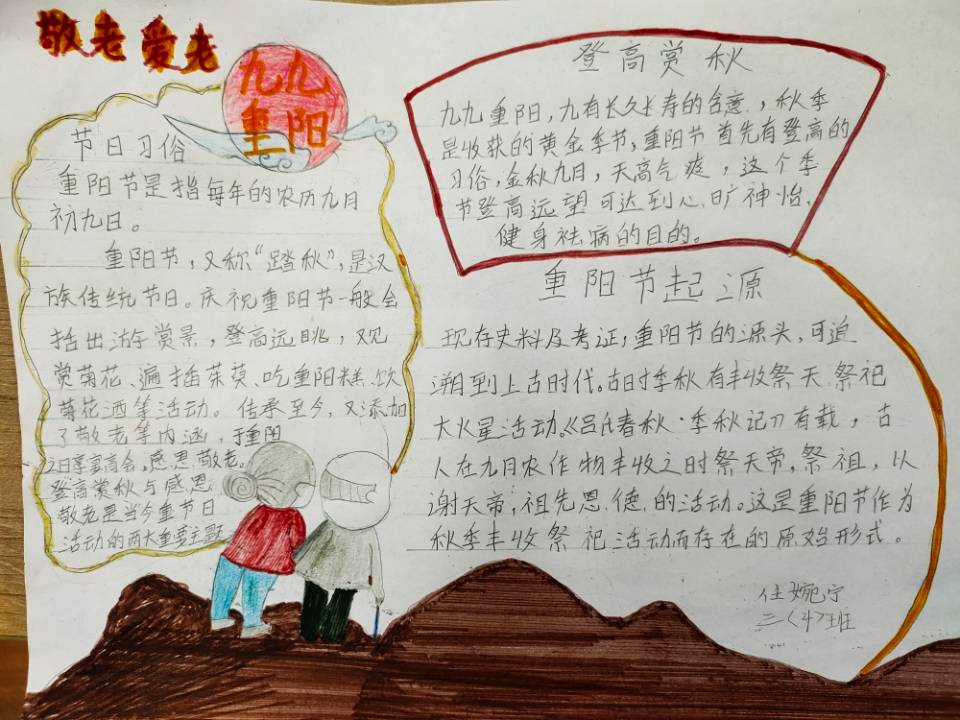 敬老爱老
九九
重阳
节日习俗
重阳节是指每年的农历九月
初九日。
重阳节，又称“踏秋”，是汉
族传统节日。庆祝重阳节一般会
括出游赏景，登高远眺，观
赏菊花、遍插茱萸、吃重阳糕、饮
菊花酒等活动。传承至今，又添加
了敬老等内涵，于重阳
之日享宴高会，感恩敬老。
登高赏秋与感恩
敬老是当今重节日
活动的两大重要主题
登高赏秋
九九重阳，九有长久长寿的含意，秋季
是收获的黄金季节，重阳节首先有登高的
习俗，金秋九月，天高气爽，这个季
节登高远望可达到心旷神怡、
健身祛病的目的。
重阳节起源
现存史料及考证，重阳节的源头，可追
溯到上古时代。古时季秋有丰收祭天、祭祀
大火星活动。《吕氏春秋·季秋记》有载，古
人在九月农作物丰收之时祭天帝，祭祖，以
谢天帝，祖先恩德的活动。这是重阳节作为
秋季丰收祭祀活动而存在的原始形式。
任婉宁
三〈4〉班